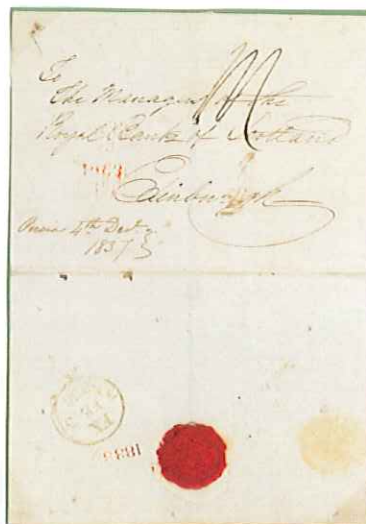 To
The Manager of the
Royal Bank of Scotland
Edinburgh
4th Decr
1837